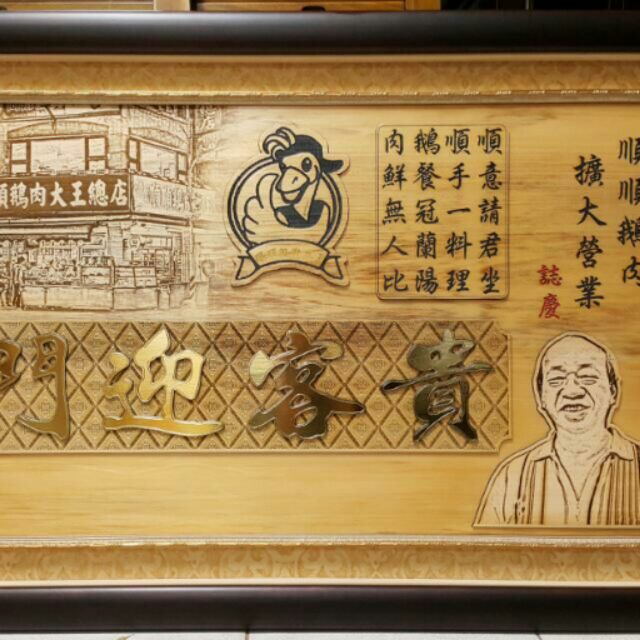 順順鵝肉
擴大營業
誌慶
順意請君坐
順手一料理
鵝餐冠蘭陽
肉鮮無人比
順鵝肉大王總店
貴客迎門